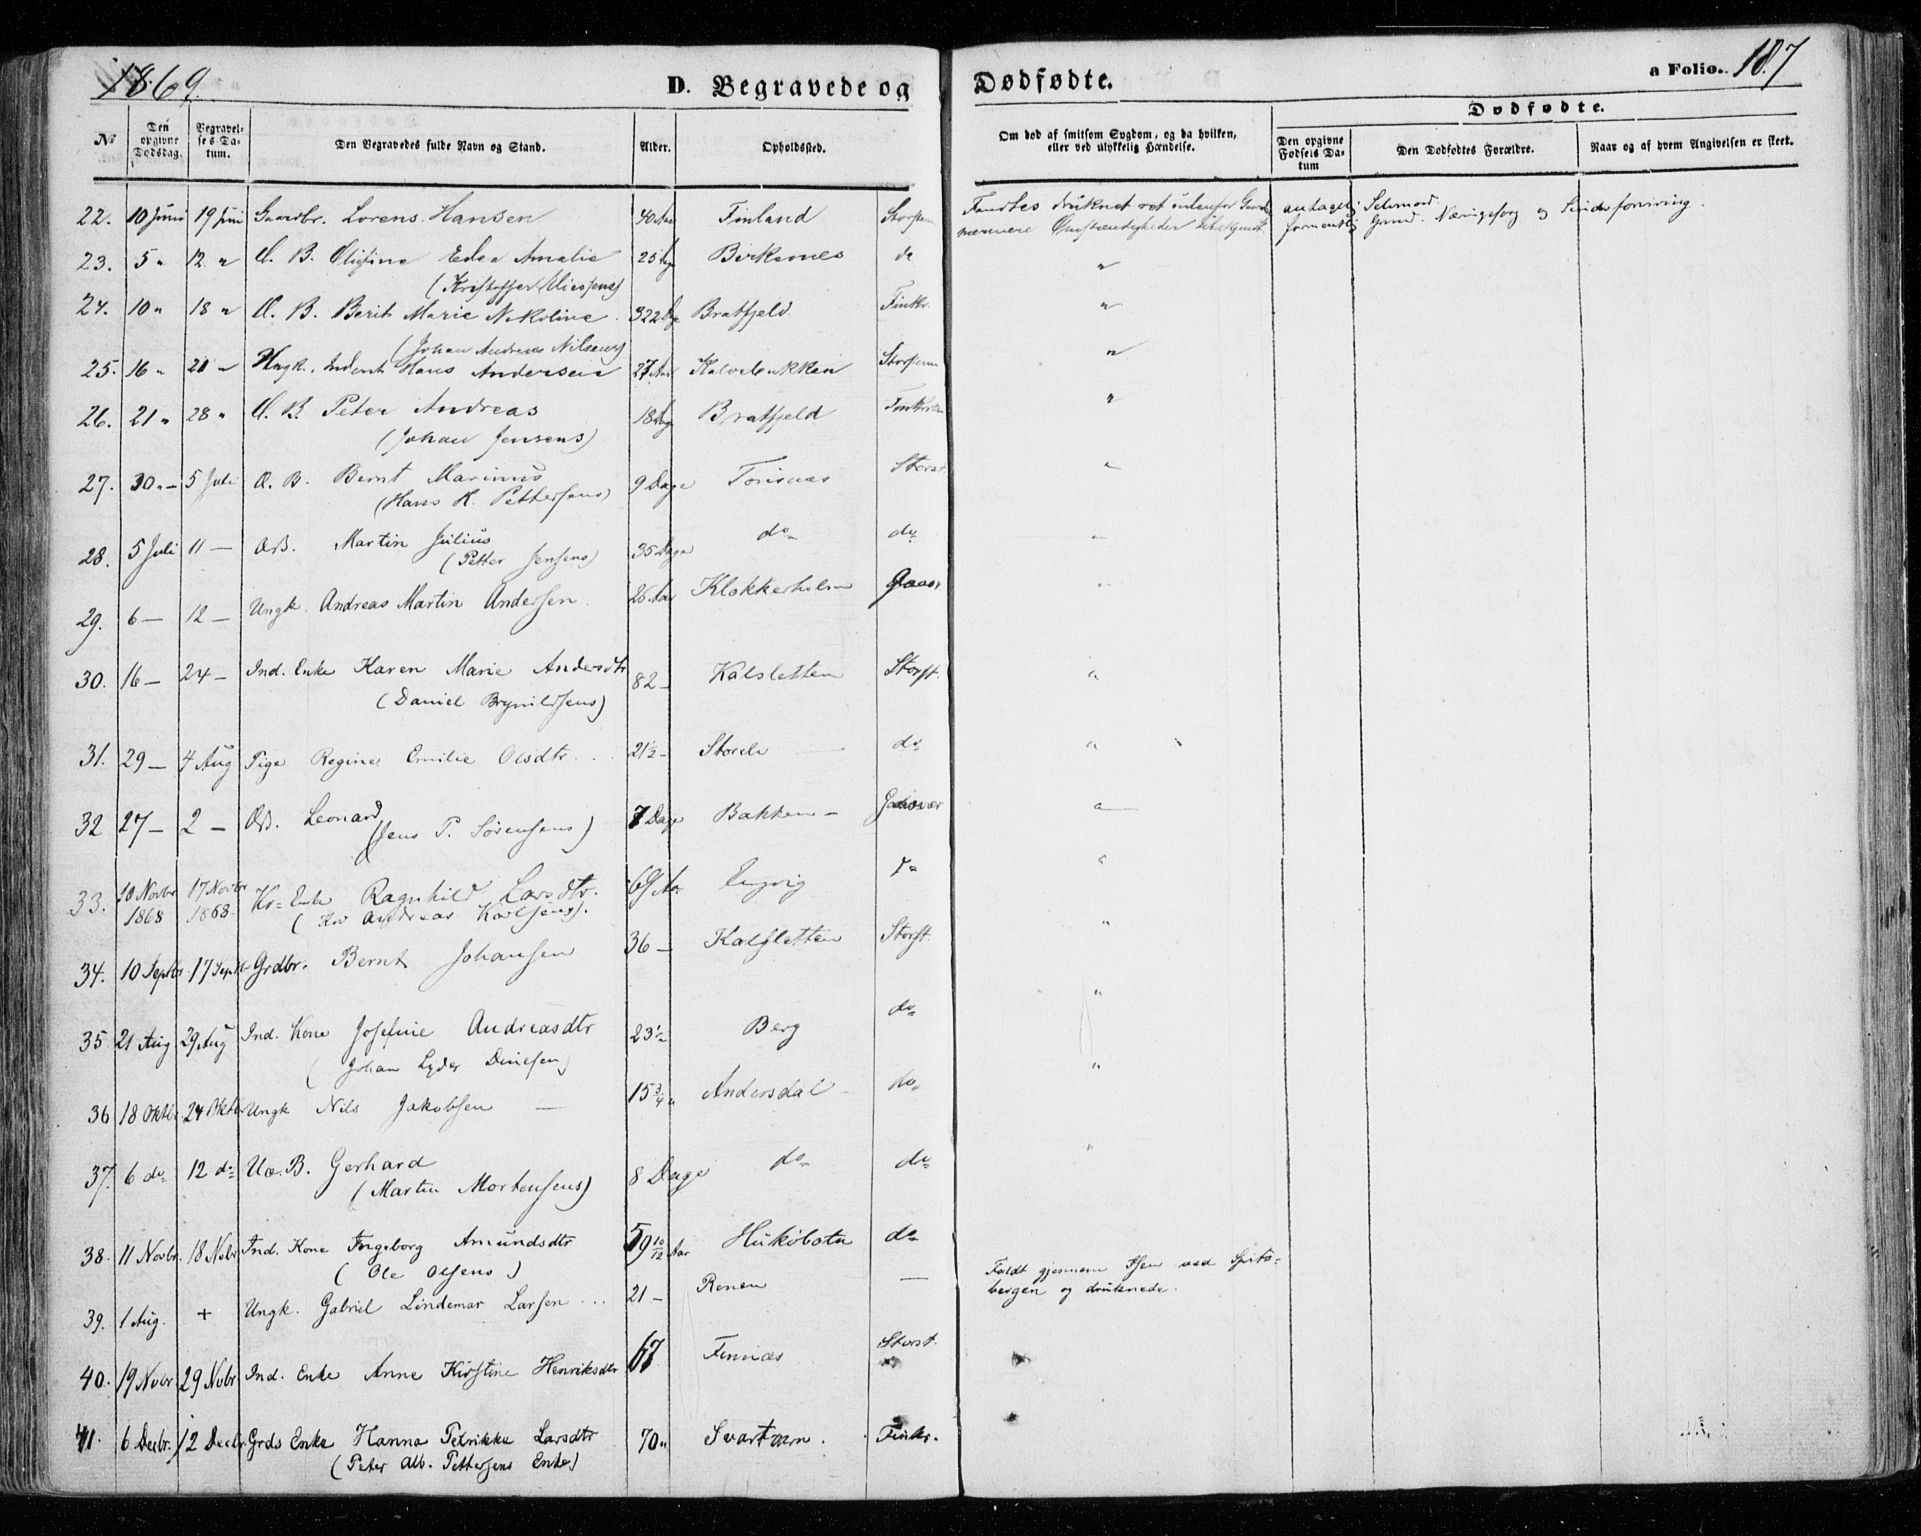 1869.
D. Begravede og Dødfødte.
a Folio. 187
№
Den opgivne Dødsdag.
Begravelses-Datum.
Den Begravedes fulde Navn og Stand.
Alder.
Opholdssted.
Om død af smitsom Sygdom, og da hvilken, eller ved ulykkelig Hændelse.
Dødfødte.
Den opgivne Fødsels Datum
Den Dødfødtes Forældre.
Naar og af hvem Angivelsen er skeet.
22. 10 Juni 19 Juni Gaardbr. Lorens Hansen 40 Aar Finland
Fandtes druknet antagelig Selvmord
formentlig Grund Næringssorg og
23. 5 " 12 " Æ. B. Edea Amalie 25 Dage Birkenes do "
24. 10 " 18 " Æ. B. Berit Marie Nikoline 322 Dage Bratfjeld Finkr. "
(Johan Andreas Nilsens)
25. 16 " 21 " Ungk. Inderst Hans Andersen 27 Aar "
26. 21 " 28 " Æ. B. Peter Andreas 18 Dage Bratfjeld "
(Johan Jensens)
27. 30 " 5 Juli Æ. B. Bernt Marinus 9 Dage Torsnæs Storst. "
(Hans H. Pettersens)
28. 5 Juli 11 — ÆB. Martin Julius 35 Dage do do "
(Petter Jensens)
29. 6 — 12 — Ungk. Andreas Martin Andersen 26 Aar Klokkerholm "
30. 16 — 24 — Ind. Enke Karen Marie Andersdtr 82 — Kalsletten Storst. "
(Daniel Brynildsens)
31. 29 — 4 Aug Pige Regine Emilie Olsdtr 21½ — Storeli do "
32 27 — 2 — ÆB. Leonard 7 Dage Bakken — "
(Jens P. Sørensens)
33. 10 Novbr 1868 17 Novbr 1868 Enke Ragnhild Larsdtr. 69 Aar Engvig do "
( Andreas Karlsens).
34. 10 Septbr 17 Septbr Grdbr. Bernt Johansen 36 — Kalsletten Storst. "
35 21 Aug 29 Aug Ind. Kone Josefine Andreasdtr 23½ Berg do "
(Johan Lyder Dinesen)
36 18 Oktbr 24 Oktbr Ungk Nils Jakobsen — 15¾ " Andersdal — do "
37. 6 do 12 do Uæ. B. Gerhard 8 Dage do do "
(Martin Mortensens)
38. 11 Novbr. 18 Nobr Ind. Kone Ingeborg Amundsdtr 59 10/12 Aar do
(Ole Olsens)
39. 1 Aug. + Ungk. Gabriel Lindemar Larsen 21 — Renen —
Faldt gjennem Isen ved Spitsbergen og druknede.
40. 19 Nobr 29 Nobr Ind. Enke Anne Kirstine Henriksdtr 67 Finnæs Storst.
41. 6 Decbr. 12 Decbr. Grds Enke Hanna Petrikke Larsdtr 70 " Svartvarn. Finkr.
(Peter Alb. Pettersens Enke)